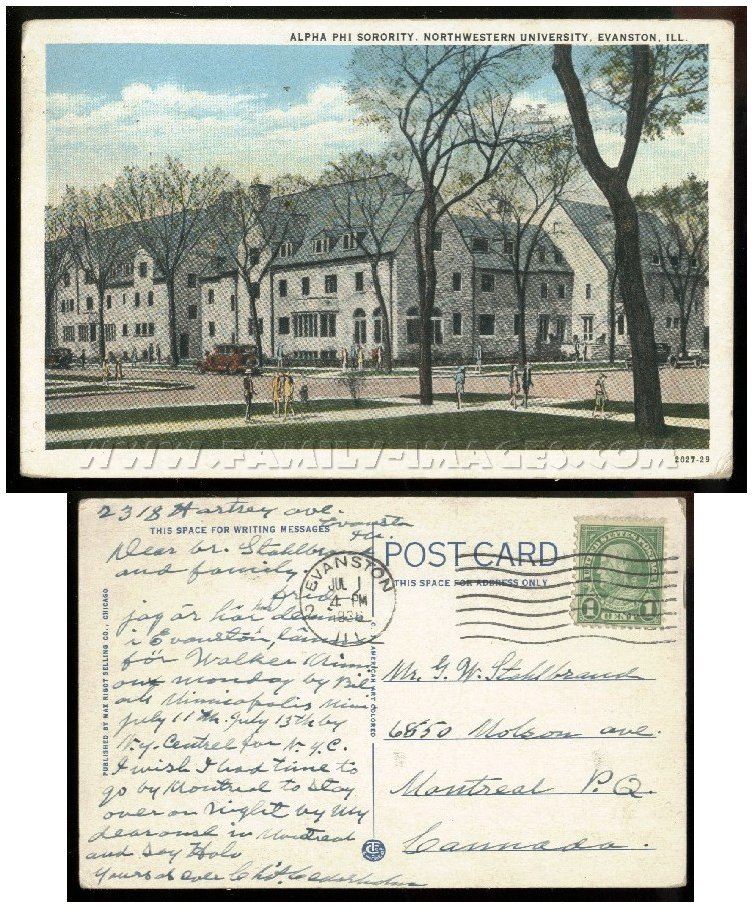 ALPHA PHI SORORITY, NORTHWESTERN UNIVERSITY, EVANSTON, ILL.
WWW.FAMILY-IMAGES.COM
2027-29
2318 Hartrey ave.
Evanston
Ill.
THIS SPACE FOR WRITING MESSAGES
Dear br. Stahlbrand
and family.
jag är här
i Evanston,
för Walker Minn
on monday by Bil
Minniapolis Min
July 11th. July 13th by
N.Y. Centrel for N.Y.C.
I wish I had time to
go by Montreal to stay
over on night by My
in Montreal
and Say Holo
Yours as ever Cederholm
PUBLISHED BY MAX RIGOT SELLING CO., CHICAGO
C. T. AMERICAN ART COLORED
POST CARD
THIS SPACE FOR ADDRESS ONLY
EVANSTON
JUL 1
4 PM
ILL.
UNITED STATES POSTAGE
1 CENT 1
Mr. G. W. Stahlbrand
6850 Molson ave.
Montreal P.Q.
Cannada.